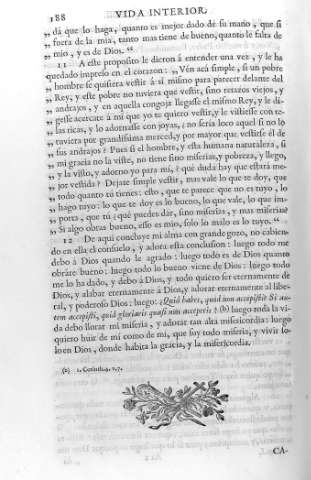 188 VIDA INTERIOR.
„ dá que lo haga, quanto es mejor dado de su mano, que si
„ fuera de la mia, tanto mas tiene de bueno, quanto le falta de
„ mio, y es de Dios. “
11 A este proposito le dieron à entender una vez, y le ha
quedado impreso en el corazon: „ Vén acá simple, si un pobre
„ hombre se quisiera vestir à sí mismo para parecer delante del
„ Rey, y este pobre no tuviera que vestir, sino retazos viejos, y
„ andrajos, y en aquella congoja llegase el mismo Rey, y le di-
„ gese acercate à mi que yo te quiero vestir, y le vistiese con te-
„ las ricas, y lo adornase con joyas, no sería loco aquel si no lo
„ tuviera por grandísima merced, y por mayor que vestirse él de
„ sus andrajos? Pues si el hombre, y esta humana naturaleza, si
„ mi gracia no la viste, no tiene sino miserias, y pobreza, y llego,
„ y la visto, y adorno yo para mí, qué duda hay que estará me-
„ jor vestida? Dejate simple vestir, mas vale lo que te doy, que
„ todo quanto tú tienes: esto, que te parece que no es tuyo, lo
„ hago tuyo: lo que te doy es lo bueno, lo que vale, lo que im-
„ porta, que tú qué puedes dar, sino miserias, y mas miserias?
„ Si algo obras bueno, eso es mio, solo lo malo es lo tuyo. “
12 De aqui concluye mi alma con grande gozo, no cabien-
do en ella el consuelo, y adora esta conclusion: luego todo me
debo à Dios quando le agrado: luego todo es de Dios quanto
obráre bueno: luego todo lo bueno viene de Dios: luego todo
me lo ha dado, y debo à Dios, y todo quiero ser eternamente de
Dios, y alabar eternamente à Dios, y adorar eternamente al libe-
ral, y poderoso Dios: luego: Quid habes, quod non accepisti? Si au-
tem accepisti, quid gloriaris quasi non acceperis? (b) luego toda la vi-
da debo llorar mi miseria, y adorar tan alta misericordia: luego
quiero huir de mí como de mí, que soy todo miseria, y vivir so-
lo en Dios, donde habita la gracia, y la misericordia.
1. Corinth. 4. v. 7.
CA-